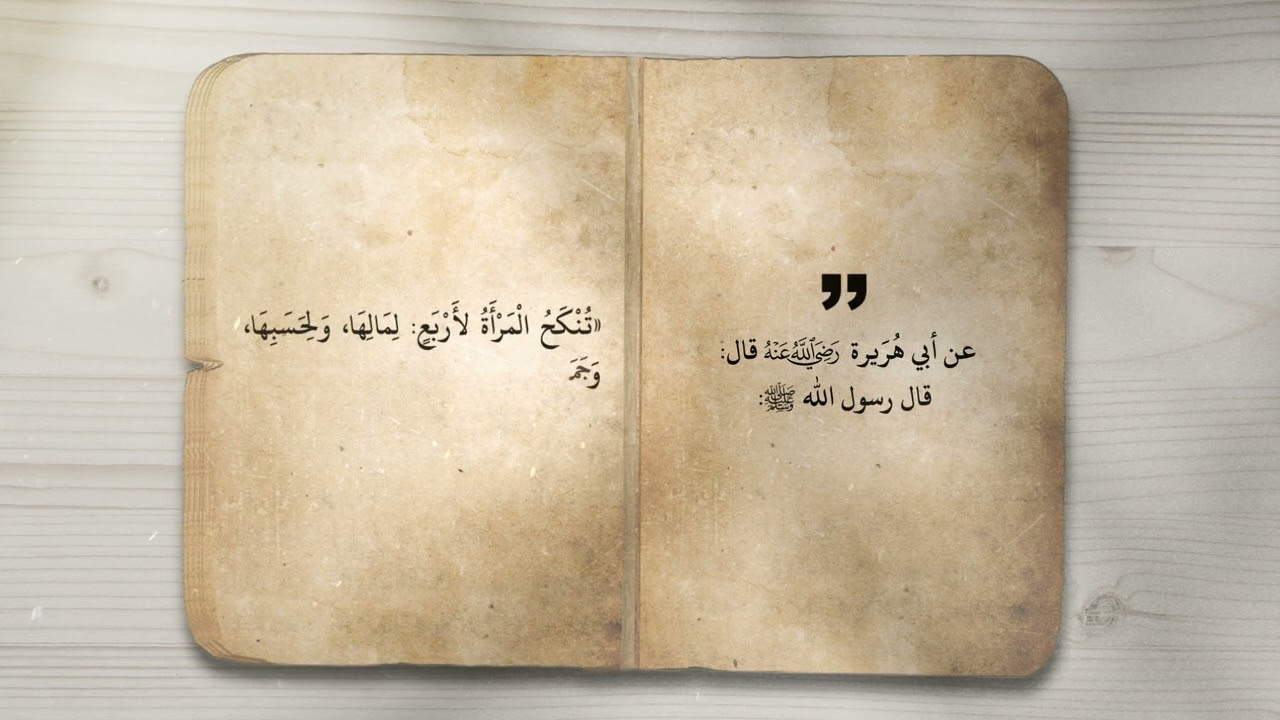 ”
عن أبي هُرَيرة رَضِيَ اللَّهُ عَنْهُ قال:
قال رسول الله ﷺ:
«تُنْكَحُ الْمَرْأَةُ لأَرْبَعٍ: لِمَالِهَا، وَلِحَسَبِهَا،
وَجَمَ